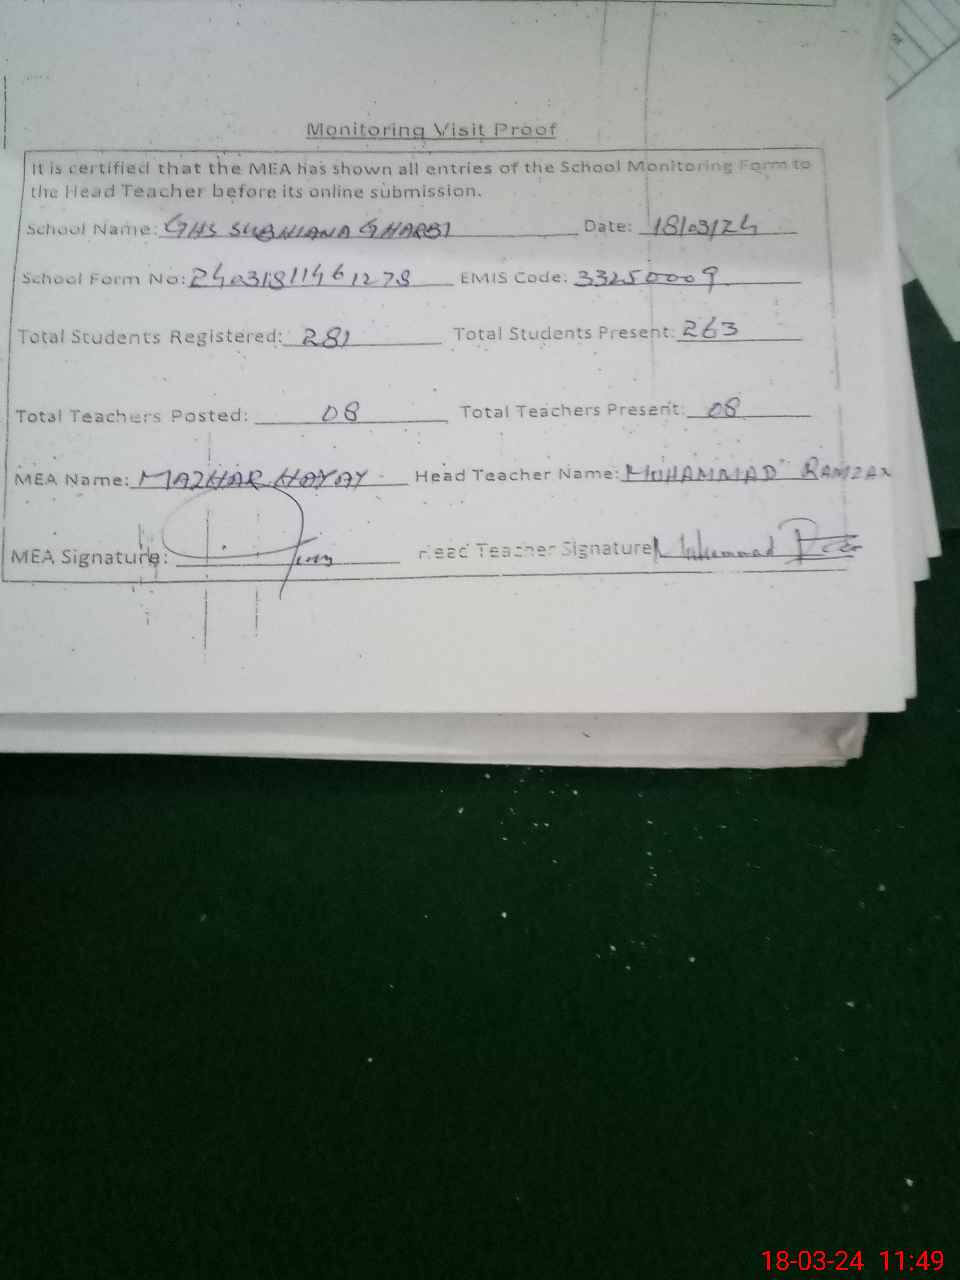 Monitoring Visit Proof
It is certified that the MEA has shown all entries of the School Monitoring Form to
the Head Teacher before its online submission.
School Name: GHS SUBHANA GHARBI Date: 18/03/24
School Form No: 24031811461278 EMIS Code: 33250009
Total Students Registered: 281 Total Students Present: 263
Total Teachers Posted: 08 Total Teachers Present: 08
MEA Name: MAZHAR HAYAT Head Teacher Name: MUHAMMAD RAMZAN
MEA Signature: Head Teacher Signature Muhammad
18-03-24 11:49